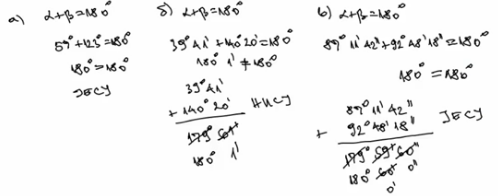 а) α+β=180°
59°+123°=180°
180°=180°
ЈЕСУ
б) α+β=180°
39°41'+140°20'=180°
180° 1' ≠180°
39°41'
+ 140°20'
179° 61'
180° 1'
НИСУ
в) α+β=180°
89°11'42"+92°48'18"=180°
180°=180°
89°11'42"
+ 92°48'18"
179° 59' 60"
180° 60' 0"
0'
ЈЕСУ